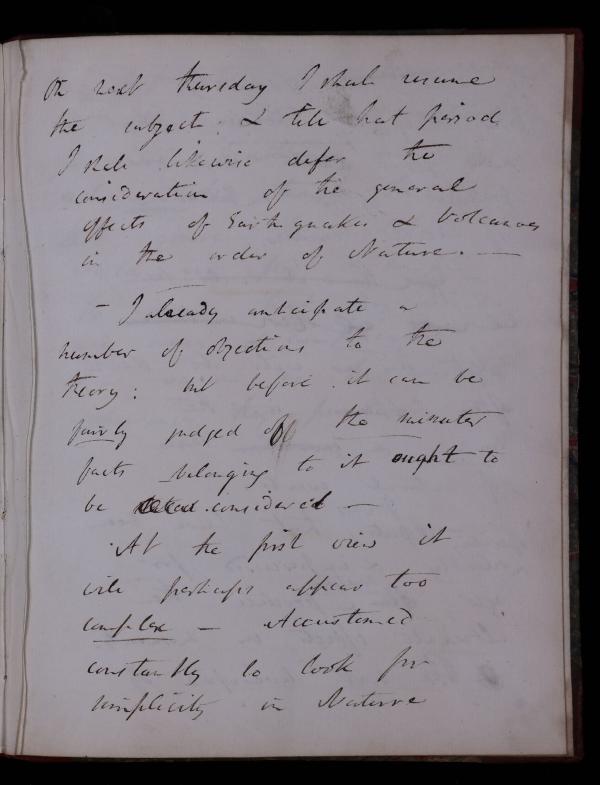 On next thursday I shall resume
the subject; & till that period
I shall likewise defer the
consideration of the general
effects of Earthquakes & Volcanoes
in the order of Nature. —
— I already anticipate a
number of objections to the
theory: but before it can be
fairly judged of the minuter
facts belonging to it ought to
be considered —
At the first view it
will perhaps appear too
complex — Accustomed
constantly to look for
simplicity in Nature